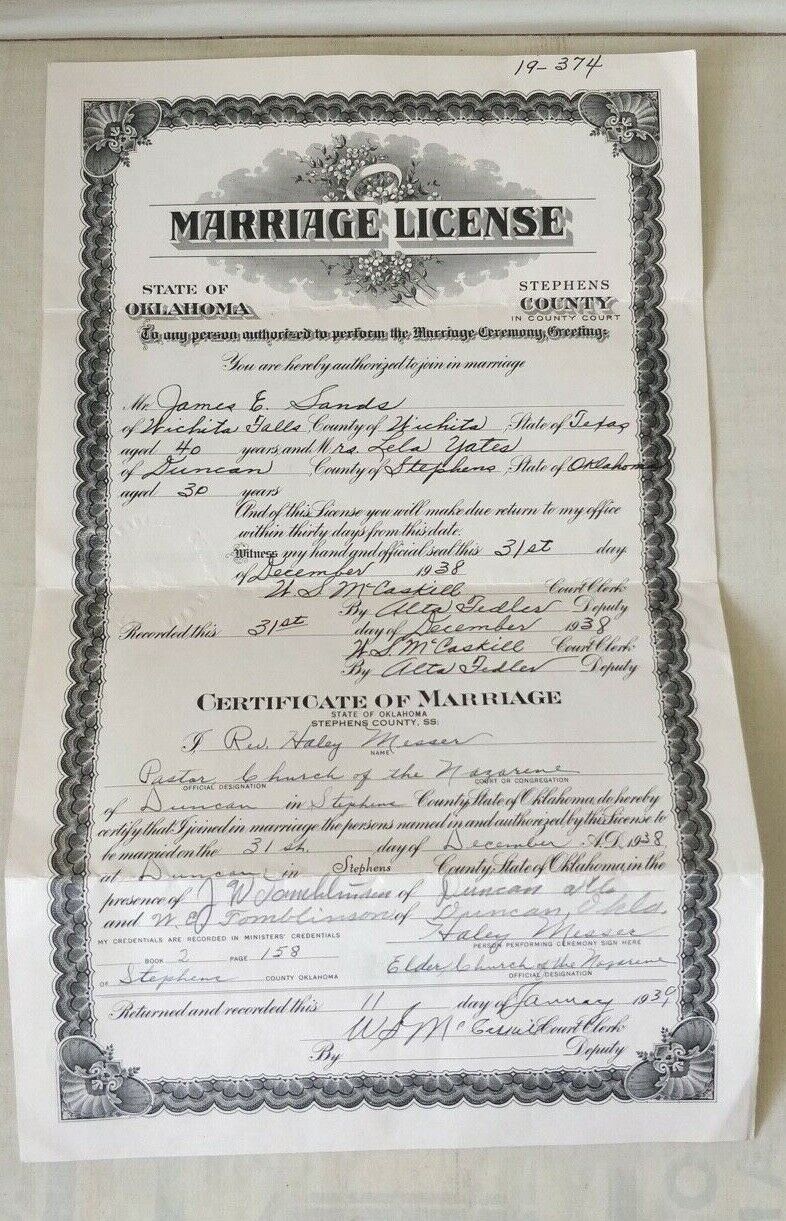 19-374
MARRIAGE LICENSE
STATE OF OKLAHOMA
STEPHENS COUNTY
IN COUNTY COURT
To any person authorized to perform the Marriage Ceremony, Greeting:
You are hereby authorized to join in marriage
Mr. James E. Sands
of Wichita Falls, County of Wichita, State of Texas
aged 40 years, and Mrs. Lela Yates
of Duncan, County of Stephens, State of Oklahoma
aged 30 years
And of this License you will make due return to my office
within thirty days from this date.
Witness my hand and official seal this 31st day
of December 1938
W S McCaskill Court Clerk
By Alta Fedler Deputy
Recorded this 31st day of December 1938
W. S. McCaskill Court Clerk
By Alta Fedler Deputy
CERTIFICATE OF MARRIAGE
STATE OF OKLAHOMA
STEPHENS COUNTY, SS.
I Rev. Haley Messer
NAME
Pastor Church of the Nazarene
OFFICIAL DESIGNATION COURT OR CONGREGATION
of Duncan in Stephens County, State of Oklahoma, do hereby
certify that I joined in marriage the persons named in and authorized by this License to
be married on the 31 st. day of December A.D. 1938
at Duncan in Stephens County, State of Oklahoma, in the
presence of J W Tomblinson of Duncan Okla
and W. E. Tomblinson of Duncan, Okla.
MY CREDENTIALS ARE RECORDED IN MINISTERS' CREDENTIALS
Haley Messer
PERSON PERFORMING CEREMONY SIGN HERE
BOOK 2 PAGE 158
Elder Church of the Nazarene
OFFICIAL DESIGNATION
OF Stephens COUNTY OKLAHOMA
Returned and recorded this 11 day of January 1939
W S McCaskill Court Clerk
By Deputy